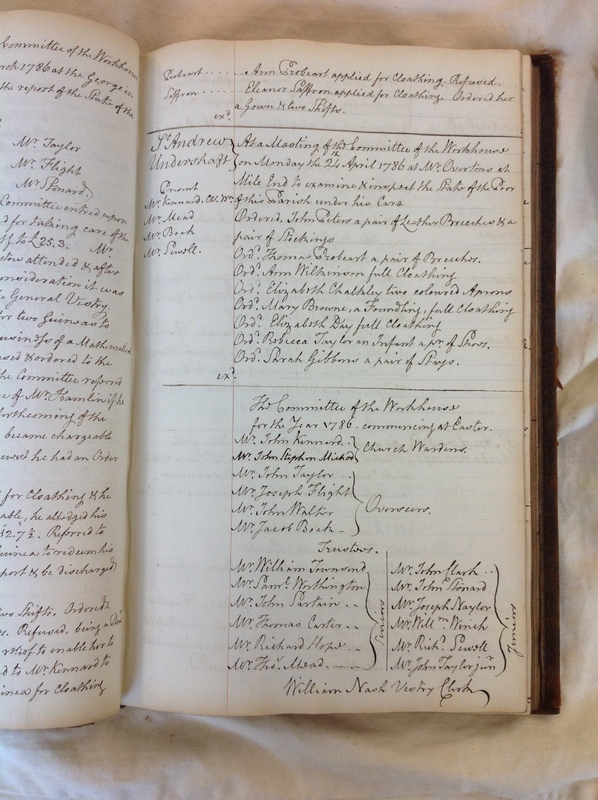 Committee of the Workhouse
rch 1786 at the George in
the report of the State of the
Mr. Taylor
Mr. Flight
Mr. Stonard
Committee entered upon
d for taking care of the
to £25.3. Mr.
attended & after
onsideration it was
General Vestry
for two Guineas to
business of a Mathematical
used & ordered to the
he Committee referred
e of Mr. Hamlin if he
forthcoming of the
became chargeable
he had an Order
for Cloathing & he
able, he alledged his
12.7½. Referred to
Guinea to redeem his
port & be discharged
two Shifts. Ordered
s. Refused, being a
relief to enable her to
d to Mr. Kennard to
inea for Cloathing
Probeart ..... Ann Probeart applied for Cloathing. Refused.
Saffron ..... Eleanor Saffron applied for Cloathing. Ordered her
exd. a Gown & two Shifts.
St. Andrew Undershaft
At a Meeting of the Committee of the Workhouse
on Monday the 24th April 1786 at Mr. Overtons at
Mile End to examine & inspect the State of the Poor
of this Parish under his Care
Present
Mr. Kennard. Ch. Wn.
Mr. Mead
Mr. Boak
Mr. Sewell.
Ordered. John Peters a pair of Leather Breeches & a
pair of Stockings
Ord. Thomas Probeart a pair of Breeches.
Ord. Ann Wilkinson full Cloathing
Ord. Elizabeth Chalkley two coloured Aprons
Ord. Mary Browne, a Foundling, full Cloathing
Ord. Elizabeth Day full Cloathing
Ord. Rebecca Taylor an Infant a pr. of Shoes.
Ord. Sarah Gibbons a pair of Stays.
exd.
The Committee of the Workhouse
for the Year 1786. commencing at Easter.
Mr. John Kennard.
Mr. John Stephen
Church Wardens.
Mr. John Taylor
Mr. Joseph Flight
Mr. John Walter
Mr. Jacob Boak
Overseers.
Trustees.
Mr. William Townsend
Mr. Saml. Worthington
Mr. John Partain
Mr. Thomas Carter
Mr. Richard Hope
Mr. Thos. Mead
Seniors
Mr. John Clark
Mr. John Stonard
Mr. Joseph Naylor
Mr. Willm. Winch
Mr. Richd. Sewell
Mr. John Taylor junr.
Juniors
William Nash Vestry Clerk